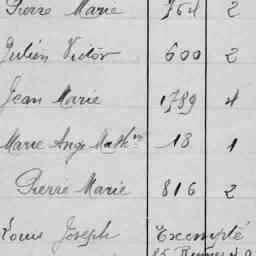 Pierre Marie 764 2
Julien Victor 600 2
Jean Marie 1789 4
Marie Ange Math^ne 18 1
Pierre Marie 816 2
Louis Joseph Exempté